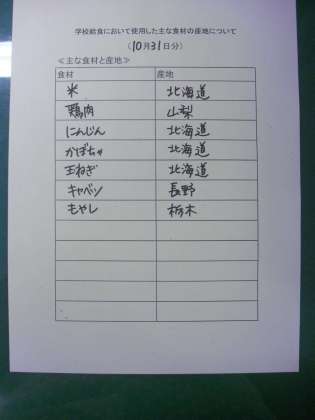 学校給食において使用した主な食材の産地について
（10月31日分）
≪主な食材と産地≫
食材 産地
米 北海道
鶏肉 山梨
にんじん 北海道
かぼちゃ 北海道
玉ねぎ 北海道
キャベツ 長野
もやし 栃木